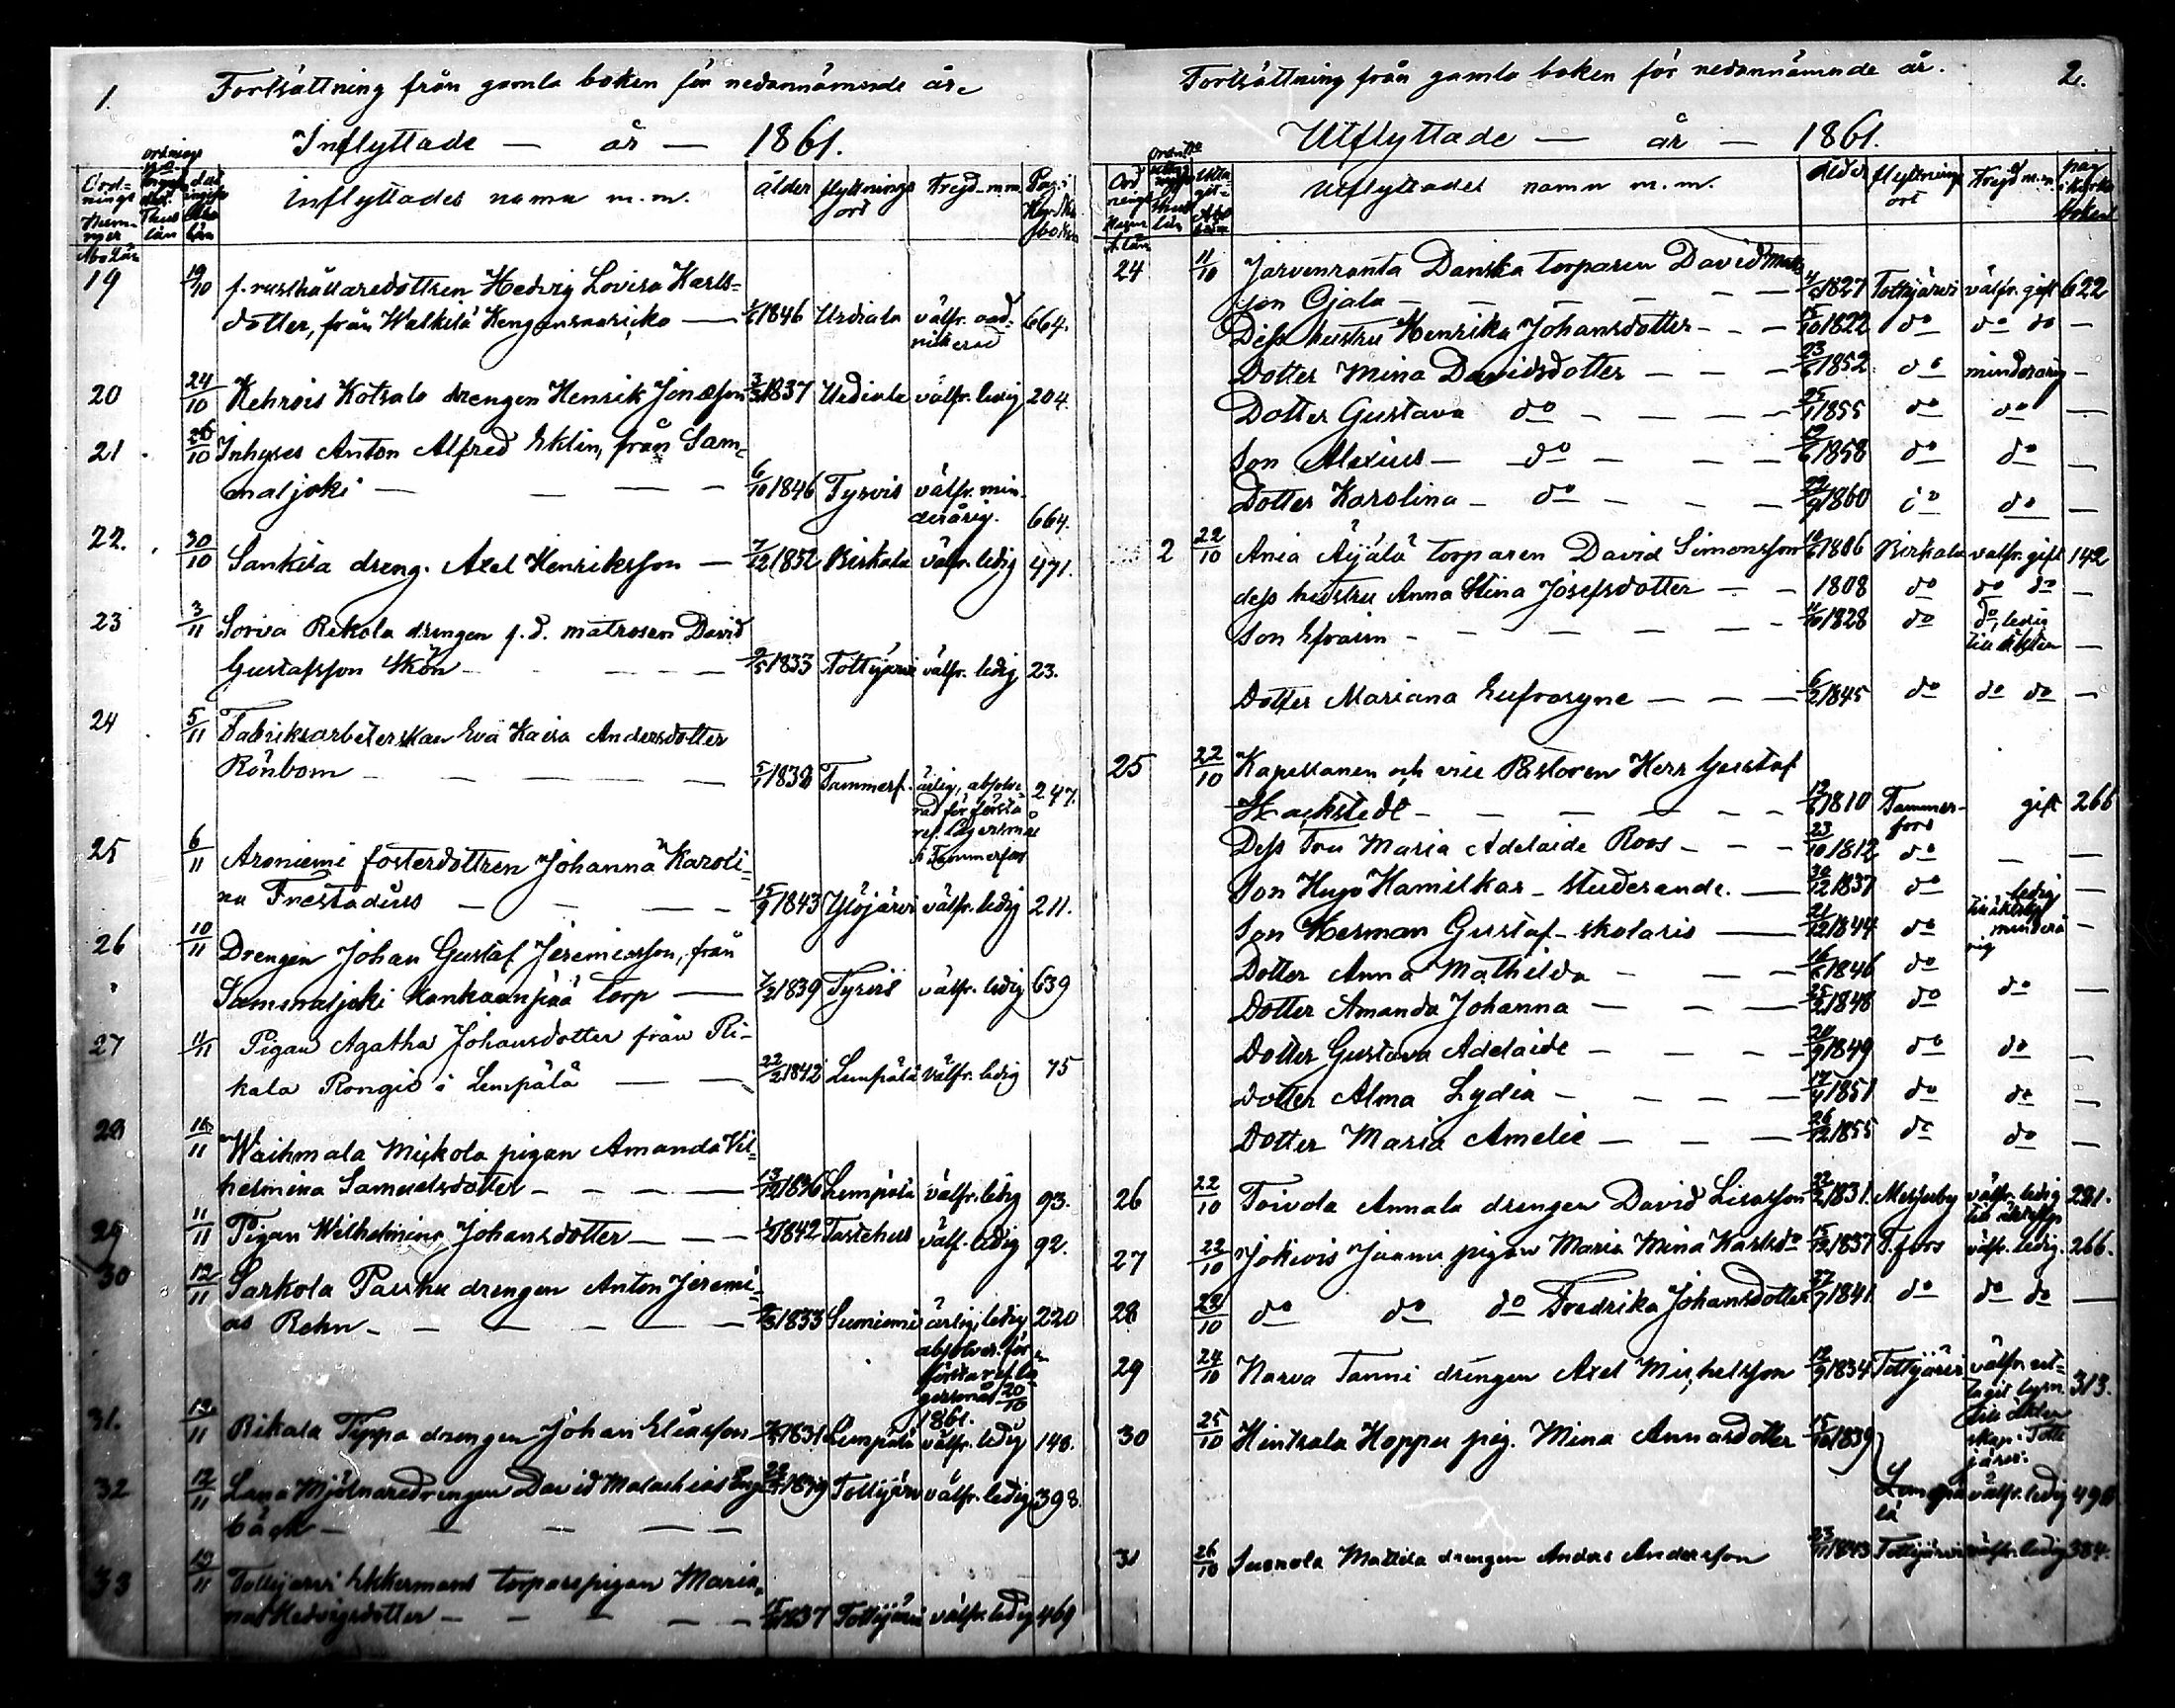 1.
Fortsättning från gamla boken för nedannämnde år.
Inflyttade — år — 1861.
Inflyttades namn m.m. ålder flyttnings ort Frejd m.m.
19 19/10 f. rusthållaredottren Hedvig Lovisa Karls-
dotter, från Walkilä — 1846 Urdiala välfr. 664.
20 24/10 Kehrois Kotsalo drengen Henrik Jonasson 1837 Urdiala välfr. ledig 204.
21 26/10 Inhyses Anton Alfred Eklin, från Sam-
maljoki — — — 6/10 1846 Tyrvis välfr. min-
derårig. 664.
22. 30/10 Sankila dreng. Axel Henriksson — 7/12 1852 Birkala välfr. ledig 471.
23 3/11 Sorva Rekola drengen f.d. matrosen David
Gustafsson Skön — — — 9/5 1833 Tottijärvi välfr. ledig 23.
24 5/11 Fabriksarbeterskan Eva Kaisa Andersdotter
Rönbom — — — Tammerf. ärlig, absolve-
rad för första 247.
lägersmål
i Tammerfors
25 6/11 Aroniemi fosterdottren Johanna Karoli-
na — — 15/9 1843 Ylöjärvi välfr. ledig 211.
26 10/11 Drengen Johan Gustaf Jeremiasson, från
Sammaljoki Kankaanpää torp — 1839 Tyrvis välfr. ledig 639
27 11/11 Pigan Agatha Johansdotter från
Rongis i Lempälä — — 22/2 1842 Lempälä välfr. ledig 75
28 11 Waihmala Mickola pigan Amanda Vil-
helmina Samuelsdotter — — — 13/12 1836 Lempälä välfr. ledig 93.
29 11/11 Pigan Wilhelmina Johansdotter — — 1842 Tavtehus välf. ledig 92.
30 12/11 Sarkola Pauhu drengen Anton Jeremi-
as Rehn — — — — 1833 Suoniemi ärlig, ledig 220
absolver. för
första
lägersmål 20/10
1861.
31. 12/11 Rikala Teppa drengen Johan Eliasson 1831 Lempälä välfr. ledig 148.
32 12/11 Mjölnaredrengen David Malachias Eng-
bäck — — — Tottijärvi välfr. ledig 398.
33 12/11 Tottijärvi Ekkermans torparepigan Maria-
na Hedvigsdotter — — — 1837 Tottijärvi välfr. ledig 469
2.
Fortsättning från gamla boken för nedannämnde år.
Utflyttade — år — 1861.
Utflyttades namn m.m. ålder flyttnings ort Frejd m.m.
24 11/10 Jarvenranta Danska torparen David Matts-
son Ojala — — — 1827 Tottijärvi välfr. gift 622
Dess hustru Henrika Johansdotter — — 15/10 1822 do do do —
Dotter Mina Davidsdotter — — — 1852 do minderårig —
Dotter Gustava do — — — 1855 do do —
Son Alexius — do — — — 1858 do do —
Dotter Karolina — do — — — 1860 do do —
2 22/10 Ania Äijälä torparen David Simonsson 1806 Birkala välfr. gift 142
dess hustru Anna Stina Josefsdotter — — 1808 do do do —
Son Efraim — — — — 11/10 1828 do do, ledig
till äkten —
Dotter Mariana Eufrosyne — — — 6/2 1845 do do do —
25 22/10 Kapellanen och vice Pastoren Herr Gustaf
Hackstedt — — — — 1810 Tammer-
fors gift 266
Dess Fru Maria Adelaide Roos — — — 23/10 1812 do — —
Son Hugo Hamilkar — Studerande. — 30/12 1837 do ledig
till äktsk. —
Son Herman Gustaf — skolaris — 21/12 1844 do minderå-
rig —
Dotter Anna Mathilda — — — 1846 do
Dotter Amanda Johanna — — — 1848 do do —
Dotter Gustava Adelaide — — — 20/9 1849 do do —
Dotter Alma Lydia — — — — 1851 do do —
Dotter Maria Amelie — — — 26/12 1855 do do —
26 22/10 Toivola Annala drengen David Lisasson 1831. välfr. ledig 221.
27 22/10 Jokivis Juanu pigan Maria Mina Karlsdr 15/12 1837 T.fors välfr. ledig. 266.
28 22/10 do do do Fredrika Johansdotter 27/7 1841. do do do —
29 24/10 Narva Tanni drengen Axel Michelsson 12/9 1834 Tottijärvi välfr. ut-
tagit lysn. 313.
till äkten-
skap i Totti-
järvi.
30 25/10 Hinsala Hoppu pig. Mina Annasdotter 15/10 1839
Lempä-
lä välfr. ledig
31 26/10 Suonola Mattila drengen Anders Andersson 23/11 1843 Tottijärvi välfr. ledig 384.